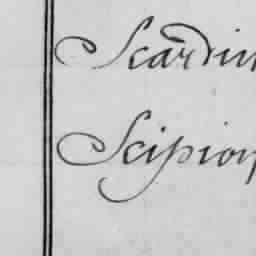 Scardin
Scipion